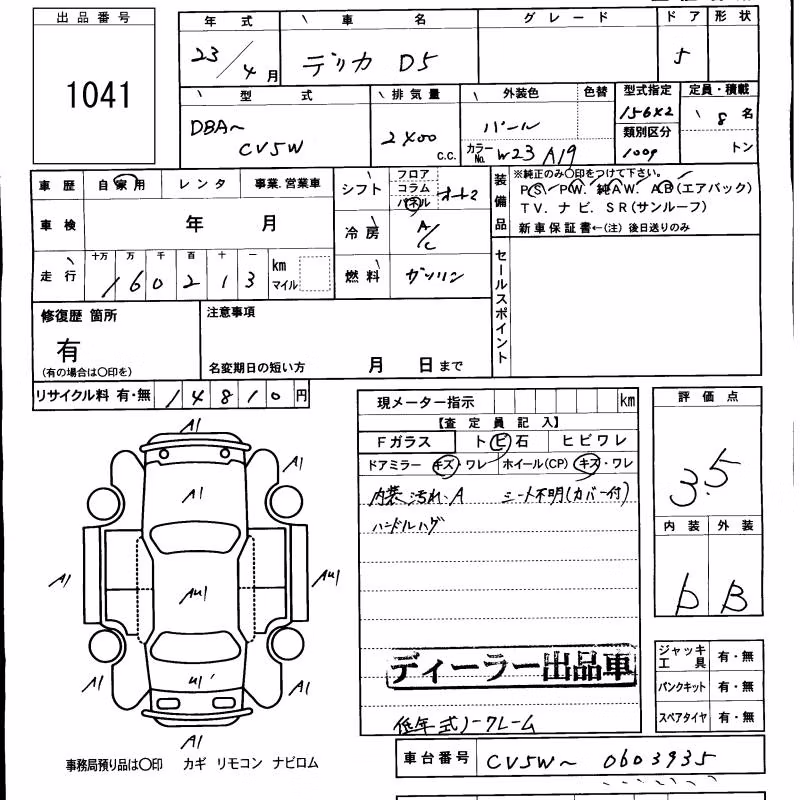 出品番号
1041
年式 車名 グレード ドア 形状
23/4月 デリカ D5 5
型式 排気量 外装色 色替 型式指定 定員・積載
DBA~ CV5W 2400 c.c. パール 15642 8名
カラーNo. W23 A19 類別区分 1009 トン
車歴 自家用 レンタ 事業.営業車 シフト フロア コラム パネル オート
装備品 ※純正のみ〇印をつけて下さい。
PS. PW. 純AW. AB(エアバック)
TV. ナビ. SR(サンルーフ)
新車保証書←(注) 後日送りのみ
車検 年 月 冷房 A/C
走行 十万 万 千 百 十 一 km マイル
160213
燃料 ガソリン
セールスポイント
修復歴 箇所
有
(有の場合は〇印を)
注意事項
名変期日の短い方 月 日まで
リサイクル料 有・無 14810円
現メーター指示 km
評価点
3.5
【査定員記入】
Fガラス トビ石 ヒビワレ
ドアミラー キズ・ワレ ホイール(CP) キズ・ワレ
内装 汚れ、A シート不明(カバー付)
ハンドルハゲ
内装 外装
b B
A1
A1
A1
A1
AU1
AU1
A1
U1
A1
A1
ディーラー出品車
低年式ノークレーム
ジャッキ工具 有・無
パンクキット 有・無
スペアタイヤ 有・無
事務局預り品は〇印 カギ リモコン ナビロム
車台番号 CV5W~ 0603935